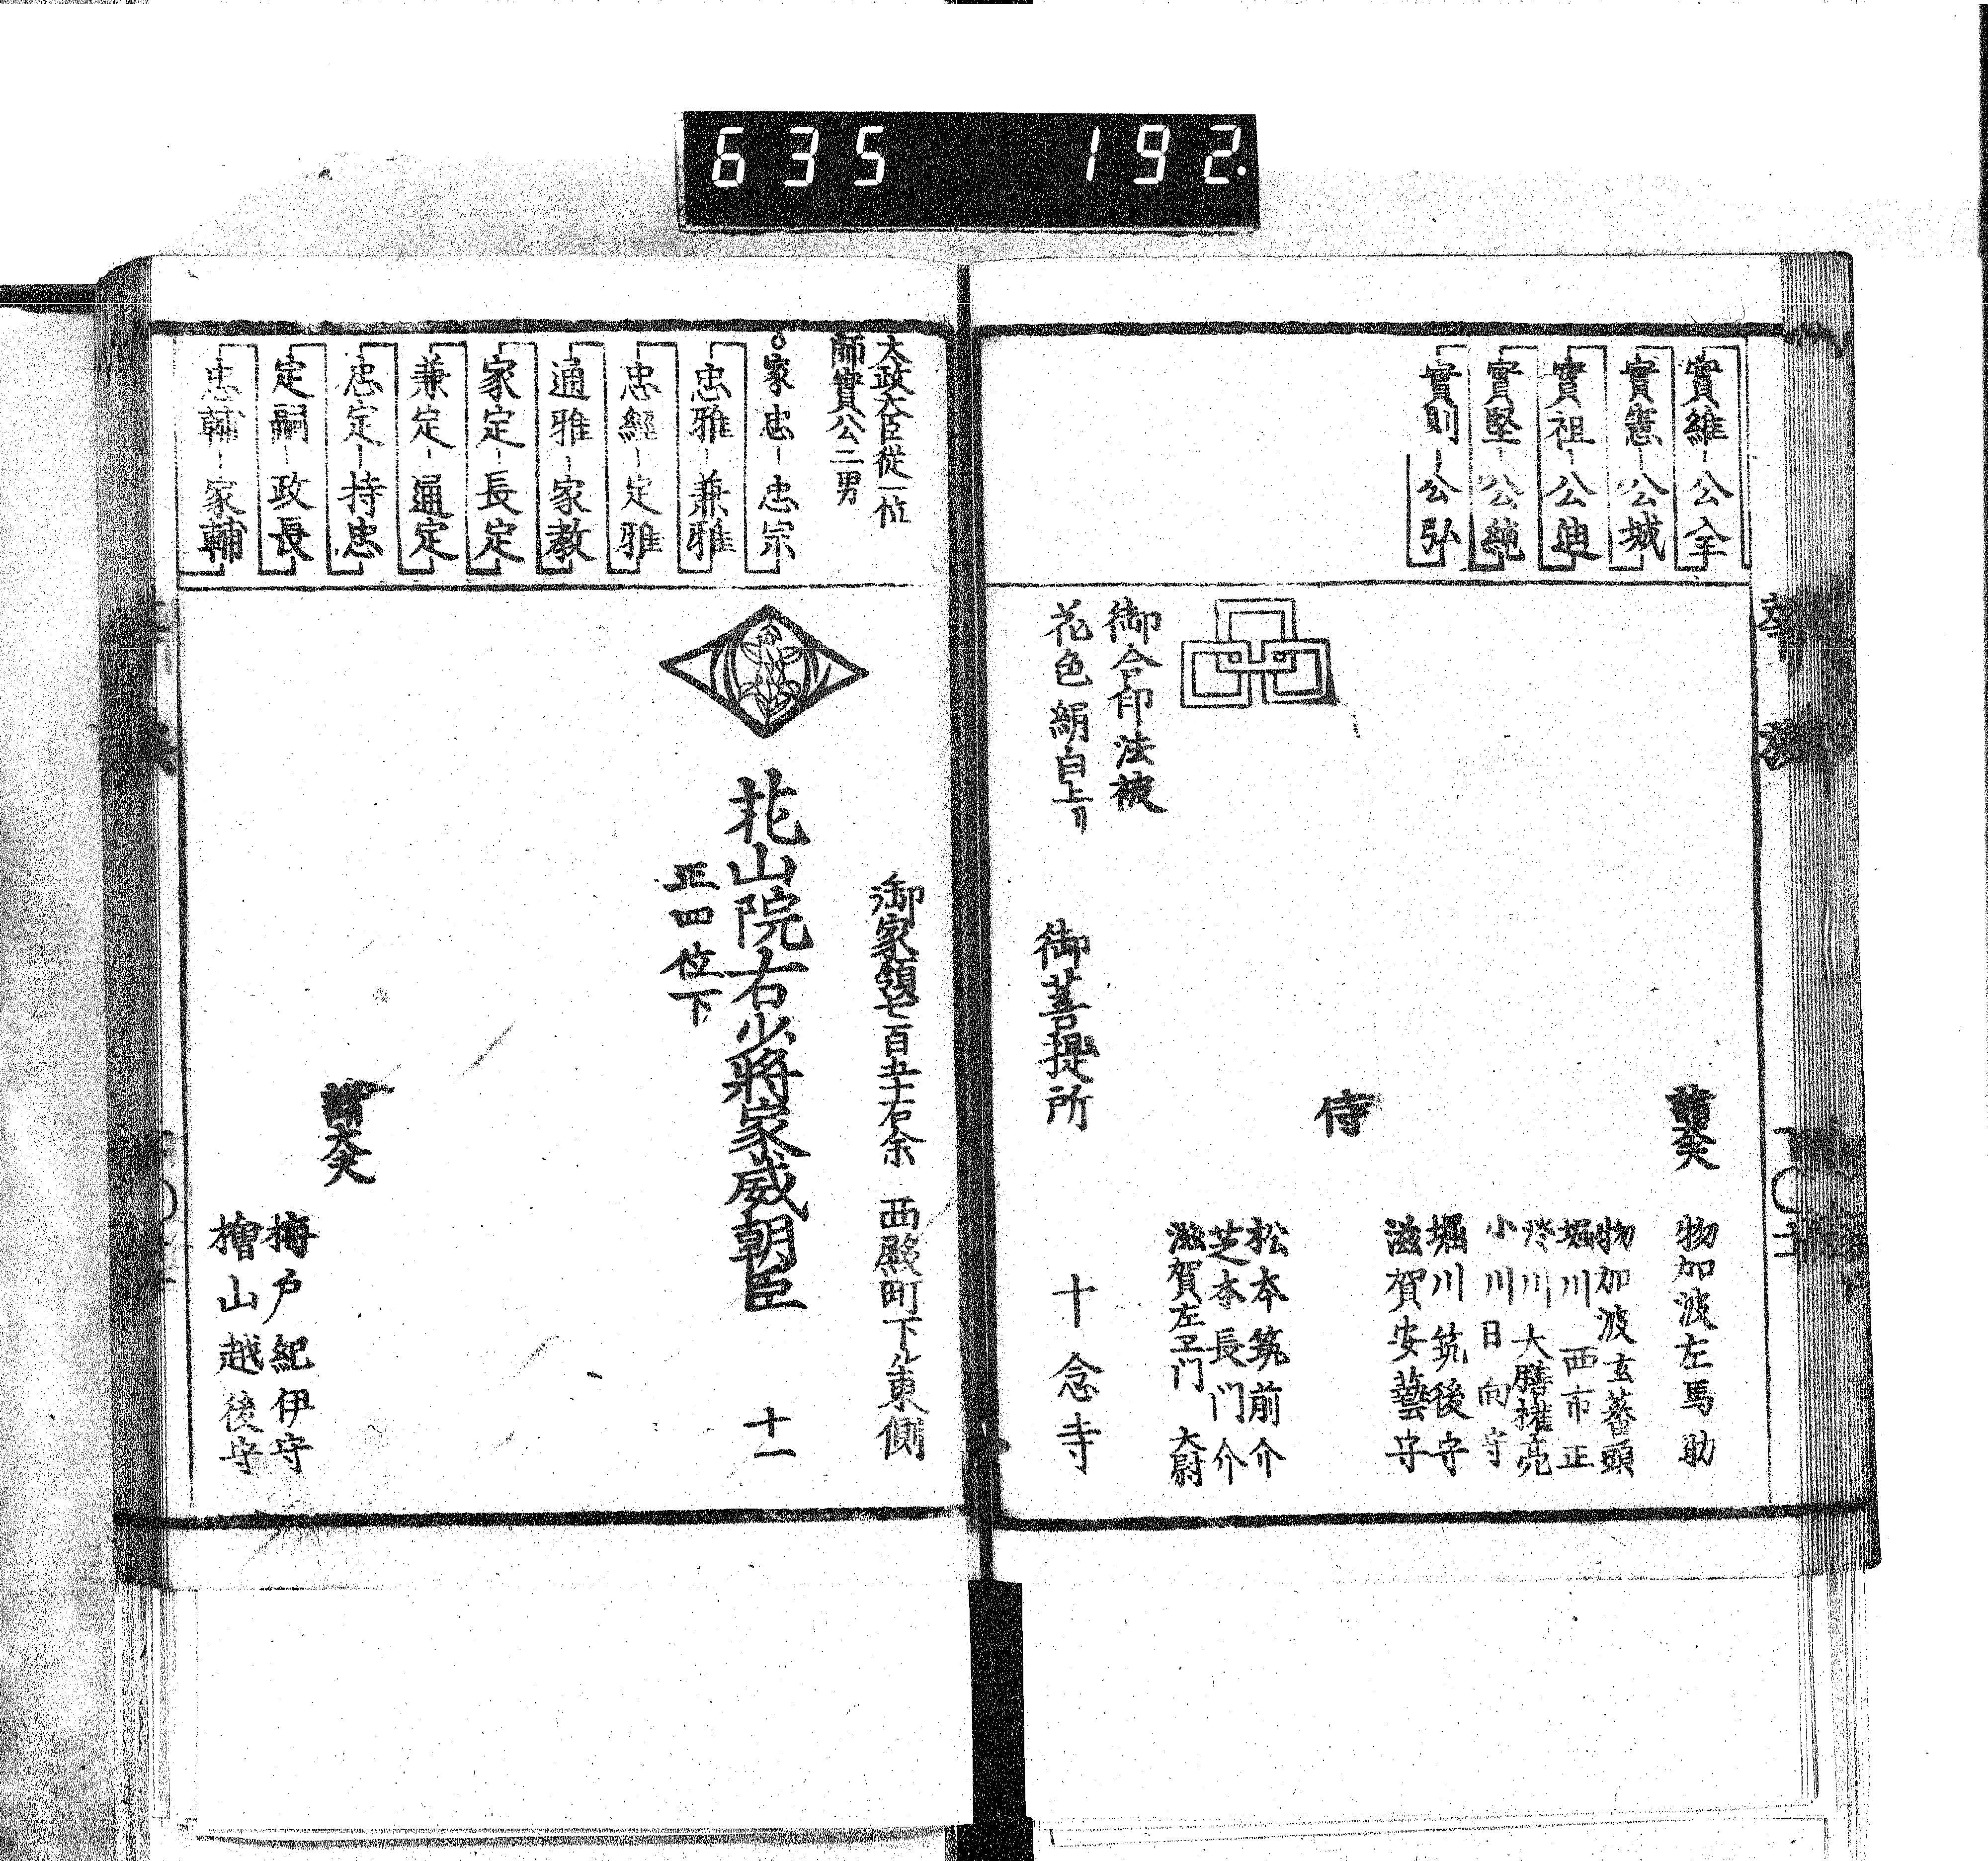 635 192.
實維-公全
實憲-公城
實祖-公廸
實堅-公純
實則-公弘
諸大夫
物加波左馬助
物加波玄蕃頭
堀川西市正
澄川大膳権亮
小川日向守
堀川筑後守
滋賀安藝守
侍
松本筑前介
芝本長門介
滋賀左卫门大尉
御合印法被
花色絹白上リ
御菩提所
十念寺
太政大臣従一位
師實公二男
家忠-忠宗
忠雅-兼雅
忠經-定雅
通雅-家教
家定-長定
兼定-通定
忠定-持忠
定嗣-政長
忠輔-家輔
御家領七百五十石余 西殿町下ル東側
花山院右少將家威朝臣 十一
正四位下
諸大夫
梅戸紀伊守
檜山越後守